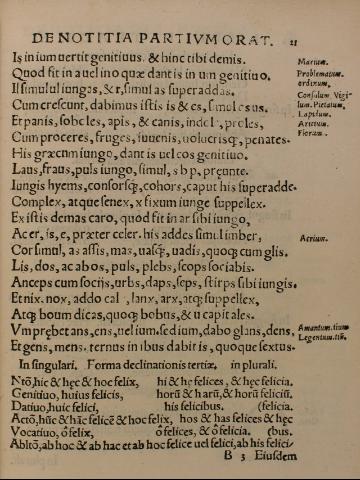 DE NOTITIA PARTIVM ORAT. 21
Is in ium uertit genitiuus, & hinc tibi demis.
Marium.
Quod fit in a uel in o quæ dant is in um genitiuo.
Problematum.
ordinum,
Il simul ul iungas, & r, simul as superaddas.
Consulum Vigi-
Cum crescunt, dabimus istis is & es, simul es us.
lum. Pietatum,
Lapilum.
Et panis, soboles, apis, & canis, indol, proles,
Arietum.
Cum proceres, fruges, iuuenis, uolucrisq;, penates.
Florum.
His græcum iungo, dant is uel eos genitiuo.
Laus, fraus, puls iungo, simul, s b p, præunte.
Iungis hyems, consorsq;, cohors, caput his superadde.
Complex, atque senex, x fixum iunge suppellex.
Ex istis demas caro, quod fit in ar sibi iungo,
Acer, is, e, præter celer. his addes simul imber,
Acrium.
Cor simul, as assis, mas, uasq;, uadis, quoq; cum glis.
Lis, dos, ac abos, puls, plebs, scops sociabis.
Anceps cum socijs, urbs, daps, seps, stirps sibi iungis.
Et nix. nox, addo cal, lanx, arx, atq; suppellex,
Atq; boum dicas, quoq; bobus, & u capitales.
Vm præbet ans, ens, uel ium. sed ium, dabo glans, dens,
Amantum. tium
Et gens, mens. ternus in ibus dabit is, quoque sextus.
Legentum. tiũ.
In singulari. Forma declinationis tertiæ, in plurali.
Ntõ, hic & hęc & hoc felix, hi & hę felices, & hęc felicia.
Genitiuo, huius felicis, horũ & harũ, & horũ feliciũ.
Datiuo, huic felici, his felicibus. (felicia.
Actõ, hũc & hãc felicẽ & hoc felix, hos & has felices & hęc
Vocatiuo, ô felix, ô felices, & ô felicia. (bus.
Abltõ, ab hoc & ab hac et ab hoc felice uel felici, ab his felici-
B 3 Eiusdem